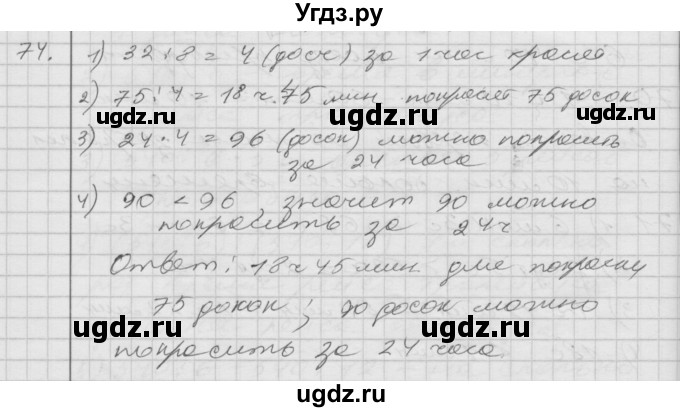 Угдз.ру
74. 1) 32 : 8 = 4 (доск) за 1 час красят
2) 75 : 4 = 18 ч. 45 мин покрасят 75 досок
ugdz.ru ugdz.ru
3) 24 · 4 = 96 (досок) можно попрасить
за 24 часа
4) 90 < 96, значит 90 можно
ugdz.ru ugdz.ru
попрасить за 24 ч
Ответ: 18 ч 45 мин. для покраски
75 докок; 90 досок можно
ugdz.ru ugdz.ru
попрасить за 24 часа.
ugdz.ru